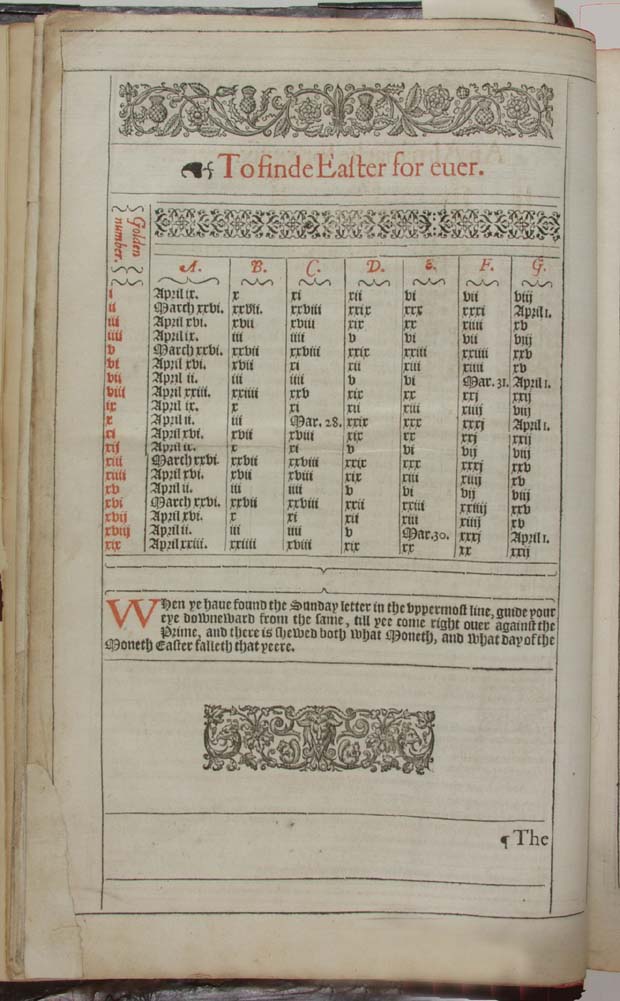 To finde Eaſter for euer.
Golden number.
A. B. C. D. E. F. G.
i April ix. x xi xii vi vii viij
ii March xxvi. xxvii. xxviii xxix xxx xxxi April 1.
iii April xvi. xvii xviii xix xx xiiii xv
iiii April ix. iii iiii v vi vii viij
v March xxvi. xxvii xxviii xxix xxiii xxiiii xxv
vi April xvi. xvii xi xii xiii xiiii xv
vii April ii. iii iiii v vi Mar. 31. April 1.
viii April xxiii. xxiiii xxv xix xx xxj xxij
ix April ix. x xi xii xiii xiiij viij
x April ii. iii Mar. 28. xxix xxx xxxj April 1.
xi April xvi. xvii xviii xix xx xxj xxij
xij April ix. x xi v vi vij viij
xiii March xxvi. xxvii xxviii xxix xxx xxxj xxv
xiiii April xvi. xvii xviii xix xiii xiiij xv
xv April ii. iii iiii v vi vij viij
xvi March xxvi. xxvii xxviii xxii xxiii xxiiij xxv
xvij April xvi. x xi xii xiii xiiij xv
xviij April ii. iii iiii v Mar.30. xxxj April 1.
xix April xxiii. xxiiii xviii xix xx xx xxij
When ye haue found the Sunday letter in the vppermoſt line, guide your
eye downeward from the ſame, till yee come right ouer againſt the
Prime, and there is ſhewed both what Moneth, and what day of the
Moneth Eaſter falleth that yeere.
¶ The